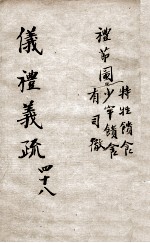 特牲饋食
禮節圖 少牢饋食
有司徹
儀禮義疏 四十八